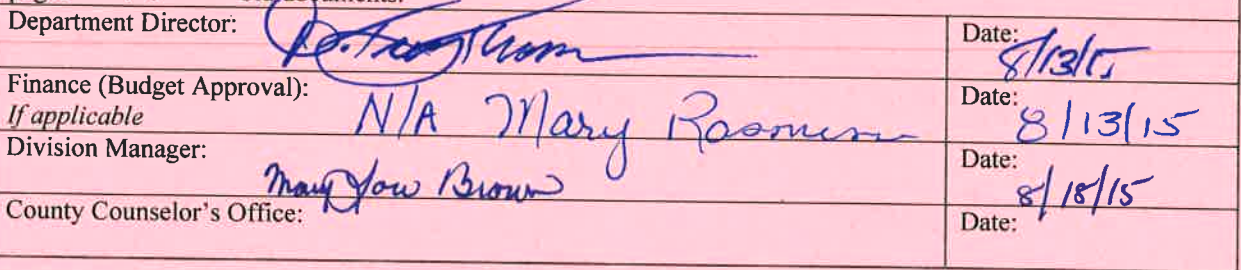 Department Director:
Date: 8/13/15
Finance (Budget Approval):
If applicable
N/A Mary Rasmussen
Date: 8/13/15
Division Manager:
Mary Lou Brown
Date: 8/18/15
County Counselor's Office:
Date: